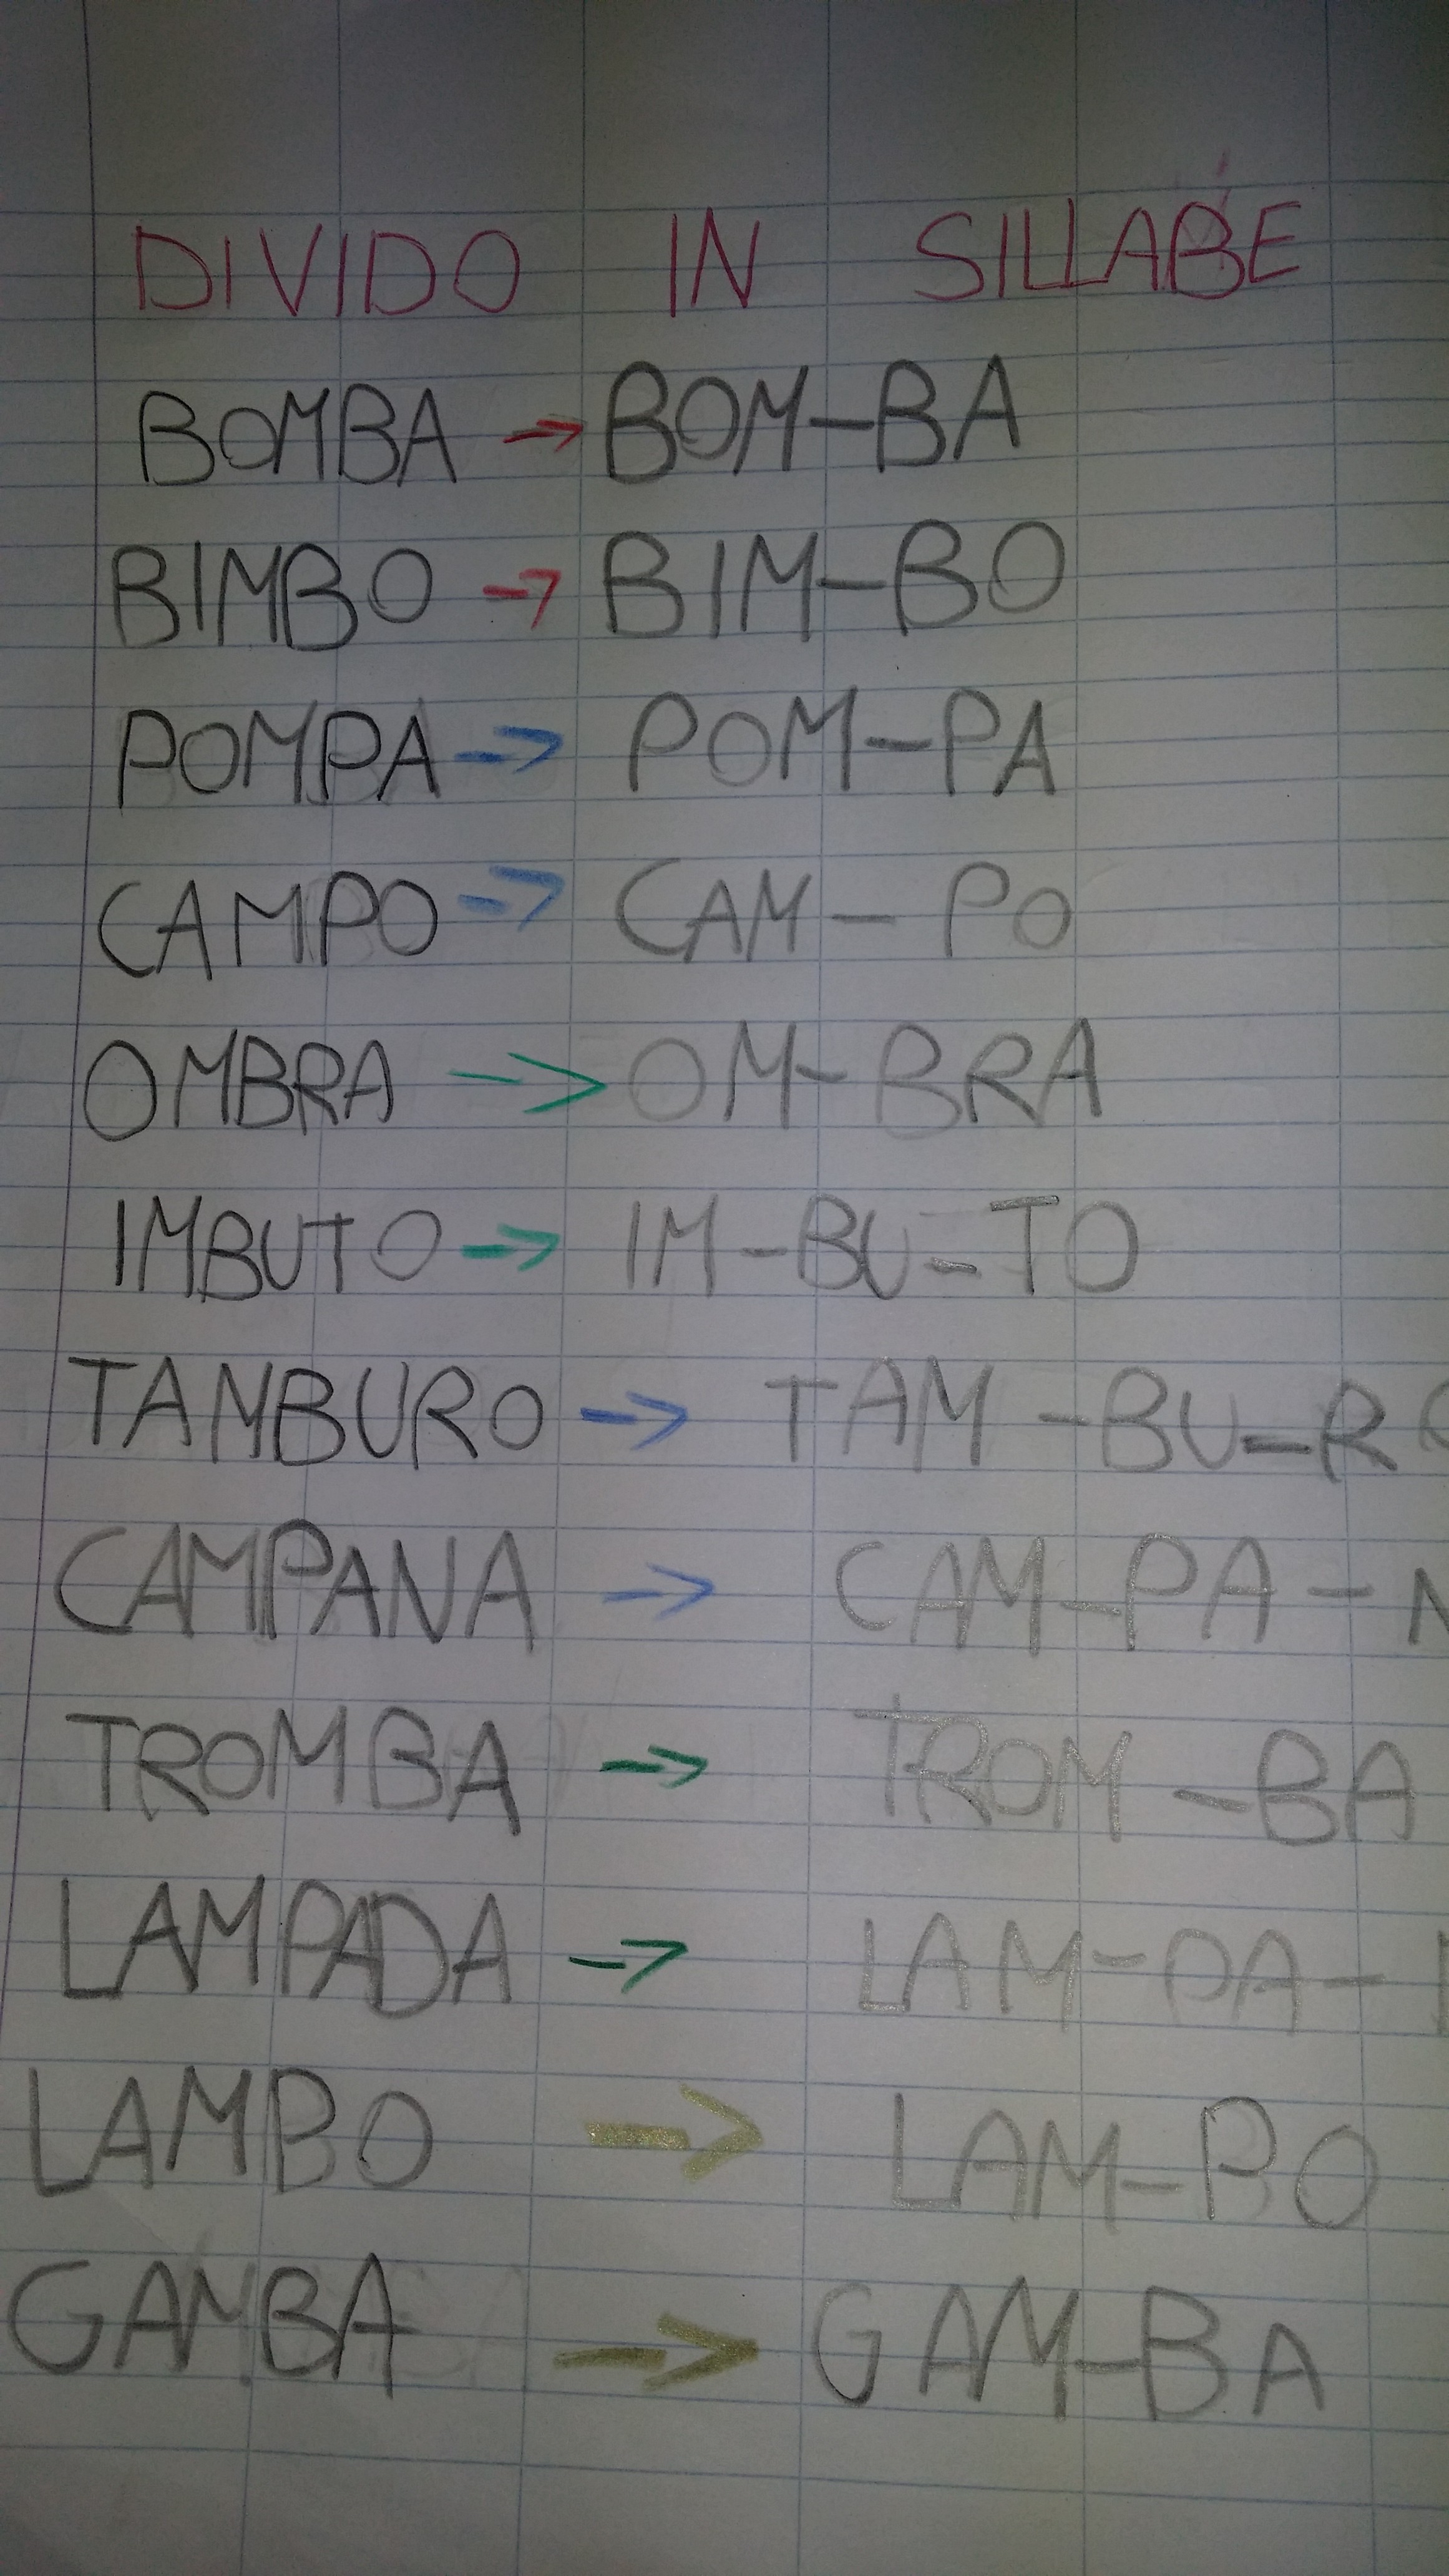 DIVIDO IN SILLABE
BOMBA → BOM-BA
BIMBO → BIM-BO
POMPA → POM-PA
CAMPO → CAM-PO
OMBRA → OM-BRA
IMBUTO → IM-BU-TO
TAMBURO → TAM-BU-RO
CAMPANA → CAM-PA-N
TROMBA → TROM-BA
LAMPADA → LAM-PA-
LAMPO → LAM-PO
GAMBA → GAM-BA